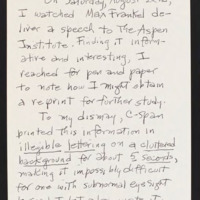 On Saturday, August 22nd,
I watched Max Frankel de-
liver a speech to The Aspen
Institute. Finding it inform-
ative and interesting, I
reached for pen and paper
to note how I might obtain
a reprint for further study.
To my dismay, C-Span
printed this information in
illegible lettering on a cluttered
background for about 5 seconds,
making it impossibly difficult
for one with subnormal eyesight